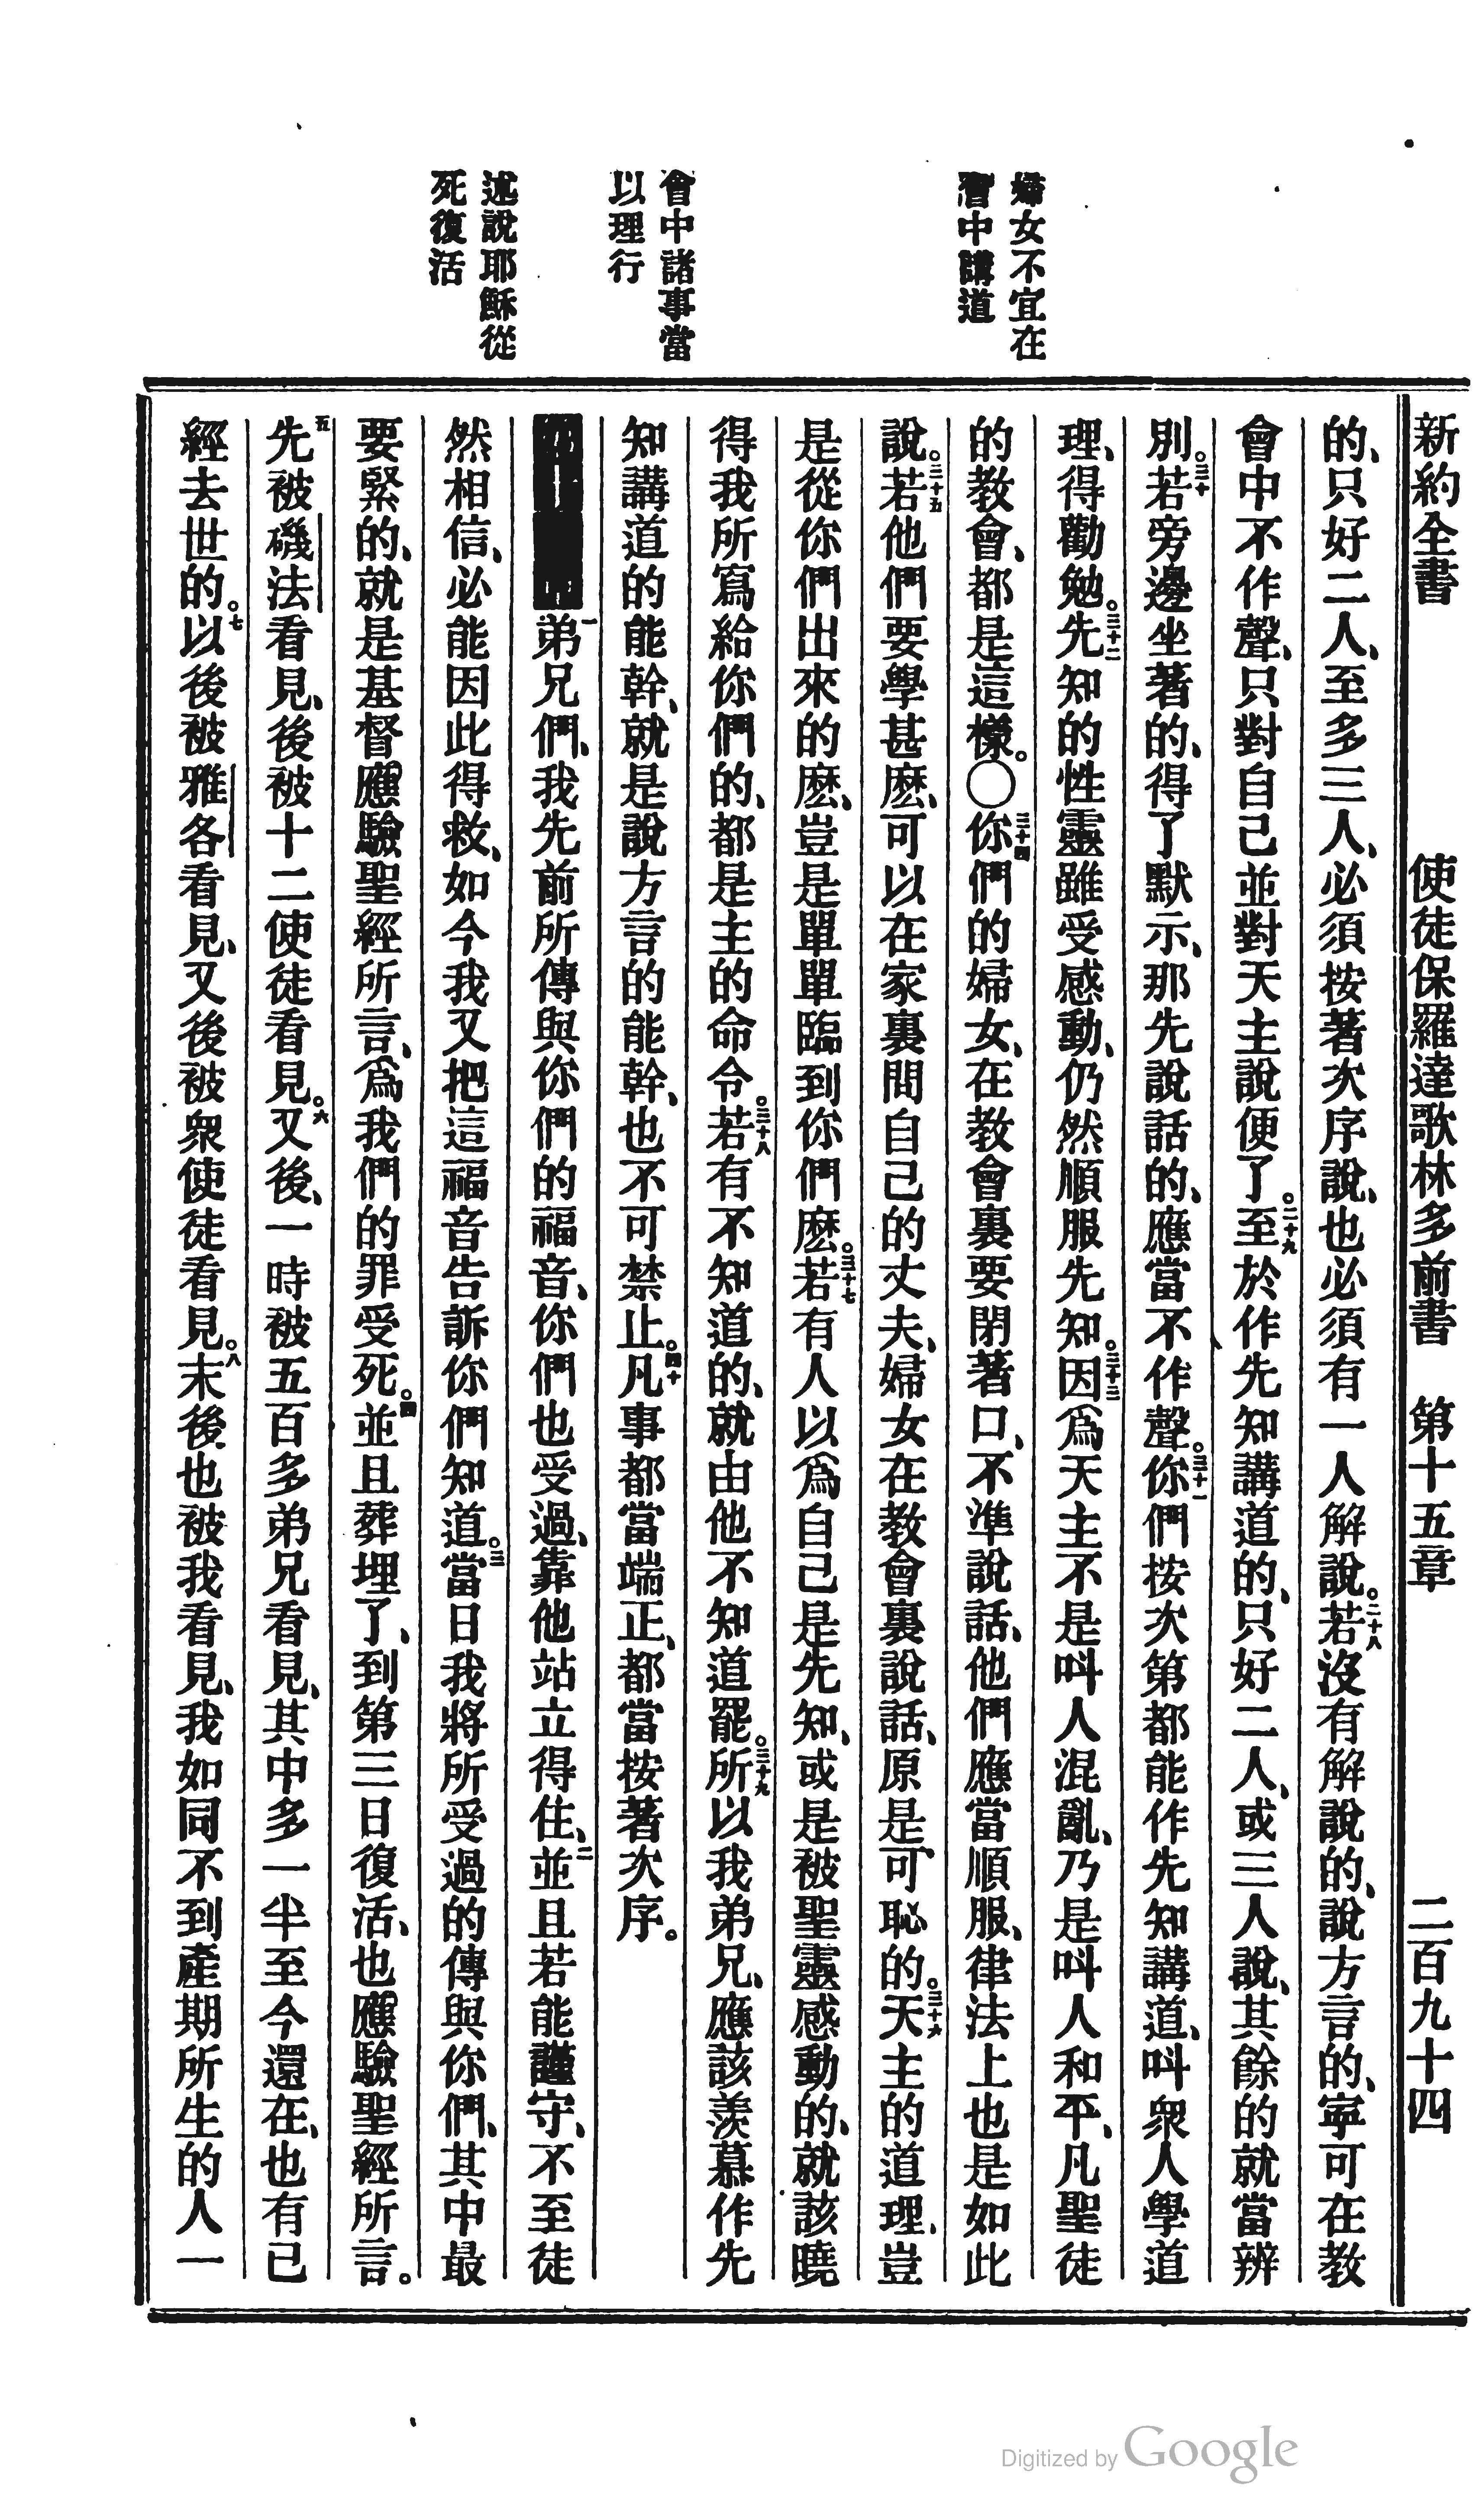 新約全書 使徒保羅達歌林多前書 第十五章 二百九十四
婦女不宜在
會中講道
會中諸事當
以理行
述說耶穌從
死復活
的、只好二人、至多三人、必須按著次序說、也必須有一人解說。二十八若沒有解說的、說方言的、寧可在教
會中不作聲、只對自己並對天主說便了。二十九至於作先知講道的、只好二人、或三人說、其餘的就當辨
別。三十若旁邊坐著的、得了默示、那先說話的、應當不作聲。三十一你們按次第都能作先知講道、叫衆人學道
理、得勸勉。三十二先知的性靈雖受感動、仍然順服先知。三十三因爲天主不是叫人混亂、乃是叫人和平、凡聖徒
的教會、都是這樣。〇三十四你們的婦女、在教會裏要閉著口、不準說話、他們應當順服、律法上也是如此
說。三十五若他們要學甚麽、可以在家裏問自己的丈夫、婦女在教會裏說話、原是可恥的。三十六天主的道理、豈
是從你們出來的麽、豈是單單臨到你們麽。三十七若有人以爲自己是先知、或是被聖靈感動的、就該曉
得我所寫給你們的、都是主的命令。三十八若有不知道的、就由他不知道罷。三十九所以我弟兄、應該羨慕作先
知講道的能幹、就是說方言的能幹、也不可禁止。四十凡事都當端正、都當按著次序。
一弟兄們、我先前所傳與你們的福音、你們也受過、靠他站立得住、二並且若能謹守、不至徒
然相信、必能因此得救、如今我又把這福音告訴你們知道。三當日我將所受過的傳與你們、其中最
要緊的、就是基督應驗聖經所言、爲我們的罪受死。四並且葬埋了、到第三日復活、也應驗聖經所言。
五先被磯法看見、後被十二使徒看見。六又後、一時被五百多弟兄看見、其中多一半至今還在、也有已
經去世的。七以後被雅各看見、又後被衆使徒看見。八末後也被我看見、我如同不到產期所生的人一
Digitized by Google